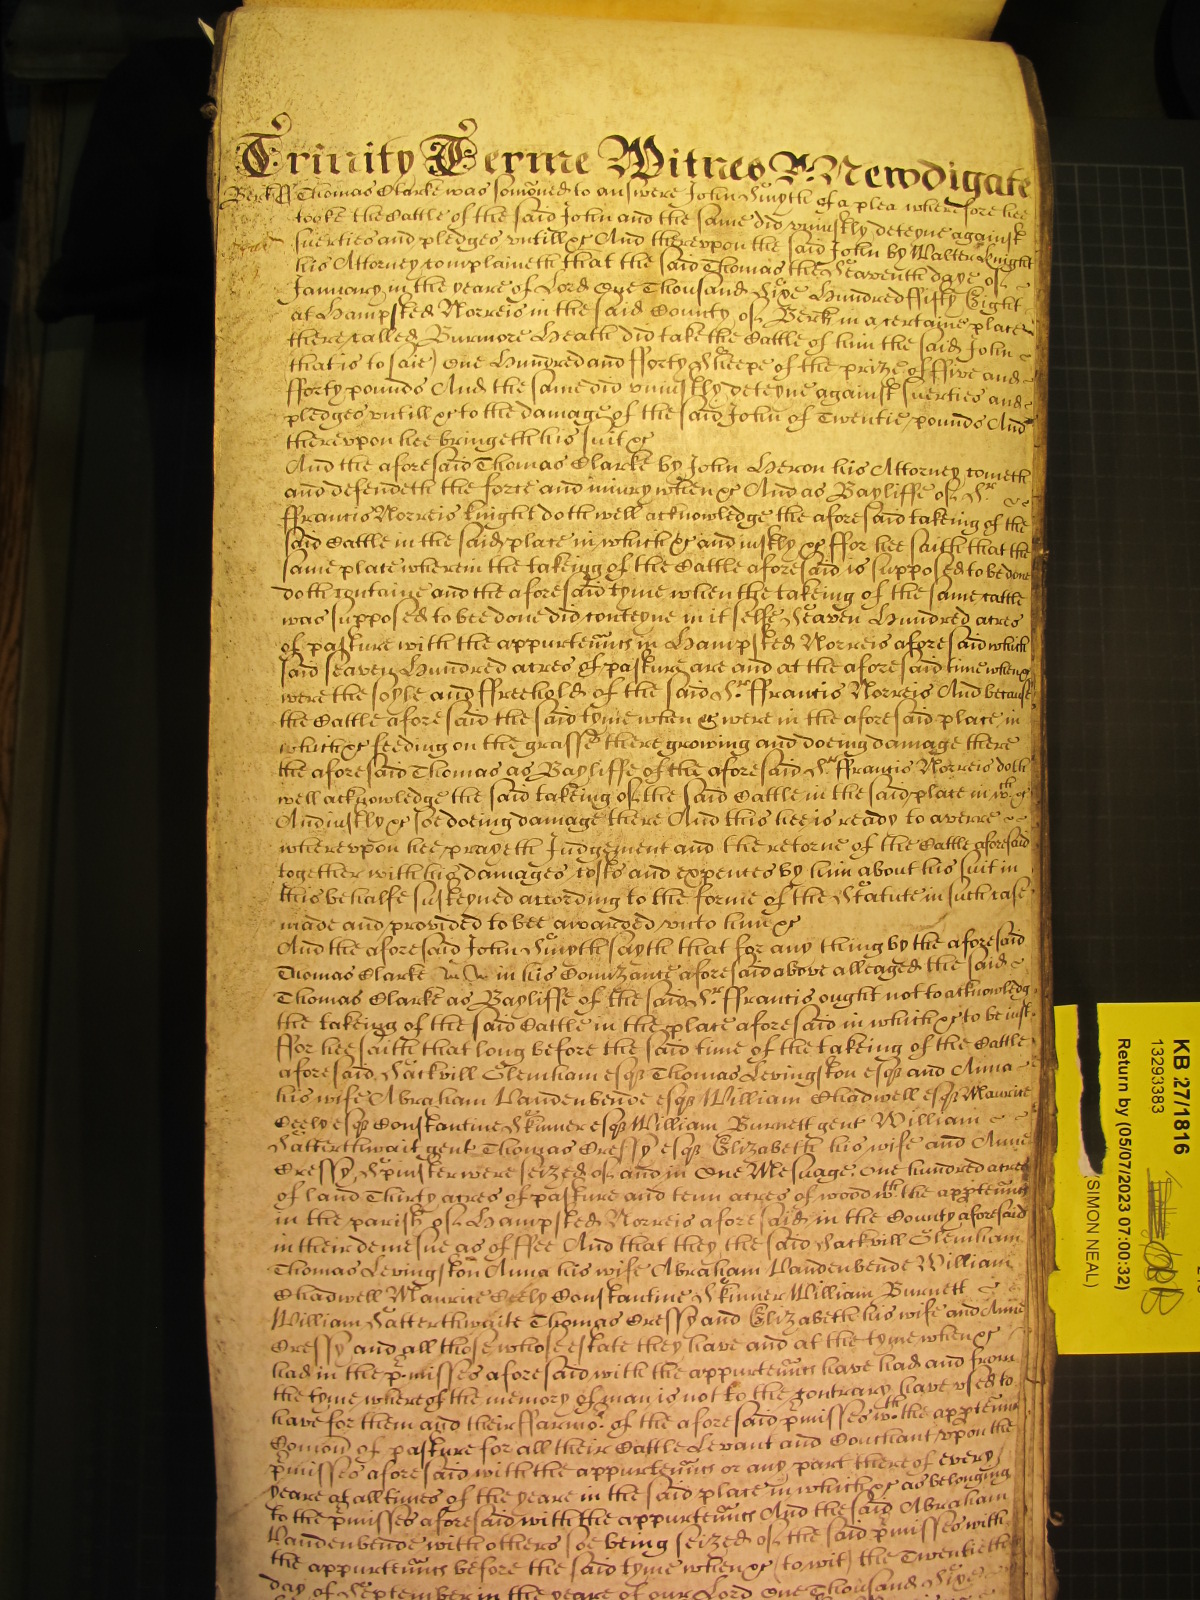 Trinity Terme Witnes R: Newdigate
Berk ss Thomas Clarke was somoned to answere John Smyth of a plea wherefore hee
tooke the Cattle of the said John and the same did uniustly deteyne against
suerties and pledges untill &c And thereupon the said John by Walter Knight
his Attorney complaineth that the said Thomas the Seaventh daye of
January in the yeare of Lord One Thousand Sixe Hundred fifty Eight
at Hampsted Norreis in the said County of Berk in a certaine place
there called Burmore Heath did take the Cattle of him the said John
that is to saie) One Hundred and fforty Sheepe of the prize of ffive and
fforty pounds And the same did uniustly deteyne against suerties and
pledges untill &c to the damage of the said John of Twentie pounds And
thereupon hee bringeth his suit &c
And the aforesaid Thomas Clarke by John Heron his Attorney cometh
and defendeth the force and iniury when &c And as Bayliffe of Sr
ffrancis Norreis Knight doth well acknowledge the aforesaid takeing of the
said Cattle in the said place in which &c and iustly &c ffor hee saith that the
same place wherein the takeing of the Cattle aforesaid is supposed to be done
doth containe and the aforesaid tyme when the takeing of the same cattle
was supposed to bee done did conteyne in it selfe Seaven Hundred acres
of pasture with the appurtennts in Hampsted Norreis aforesaid which
said seaven Hundred acres of pasture are and at the aforesaid time when &c
were the soyle and ffreehold of the said Sr ffrancis Norreis And because
the Cattle aforesaid the said tyme when &c were in the aforesaid place in
which &c feeding on the grasse there growing and doeing damage there
the aforesaid Thomas as Bayliffe of the aforesaid Sr ffrancis Norreis doth
well acknowledge the said takeing of the said Cattle in the said place in wch &c
And iustly &c soe doeing damage there And this hee is ready to averre
whereupon hee prayeth Iudgement and the retorne of the Cattle aforesaid
together with his damages costs and expences by him about his suit in
this behalfe susteyned according to the forme of the Statute in such case
made and provided to bee awarded unto him &c
And the aforesaid John Smyth sayth that for any thing by the aforesaid
Thomas Clarke in his Counzance aforesaid above alleaged the said
Thomas Clarke as Bayliffe of the said Sr ffrancis ought not to acknowledg
the takeing of the said Cattle in the place aforesaid in which &c to be iust
ffor hee saith that long before the said time of the takeing of the Cattle
aforesaid Sackvill Glemham esqr Thomas Levingston esqr and Anna
his wife Abraham Vandenbende esqr William Shadwell esqr Maurice
Ceely esqr Constantine Skinner esqr William Burnett gent William
Satterthwait gent Thomas Cressy esqr Elizabeth his wife and Anne
Cressy Spinster were seized of and in One Mesuage One hundred acres
of land Thirty acres of pasture and tenn acres of wood wth the apptennts
in the parish of Hampsted Norreis aforesaid in the County aforesaid
in their demesne as of ffee And that they the said Sackvill Glemham
Thomas Levingston Anna his wife Abraham Vandenbende William
Shadwell Maurice Ceely Constantine Skinner William Burnett
William Satterthwaite Thomas Cressy and Elizabeth his wife and Anne
Cressy and all those whose estate they have and at the tyme when &c
had in the pmisses aforesaid with the appurtennts have had and from
the tyme whereof the memory of man is not to the contrary have used to
have for them and their ffarmors of the aforesaid pmisses wth the apptennts
Comon of pasture for all their Cattle Levant and Couchant upon the
pmisses aforesaid with the appurtennts or any part thereof every
yeare at all times of the yeare in the said place in which &c as belonging
to the pmisses aforesaid with the appurtennts And the said Abraham
Vandenbende with others soe being seized of the said pmisses with
the appurtennts before the said tyme when &c (to wit) the Twentieth
day of September in the yeare of our Lord One Thousand Sixe
KB 27/1816
13293383
Return by (05/07/2023 07:00:32)
(SIMON NEAL)